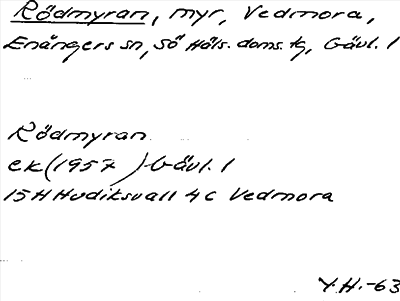 Rödmyran, myr, Vedmora,
Enångers sn, Sö Häls. doms. tg, Gävl. l
Rödmyran
ek (1957 ) Gävl. l
15H Hudiksvall 4c Vedmora
Y.H.-63